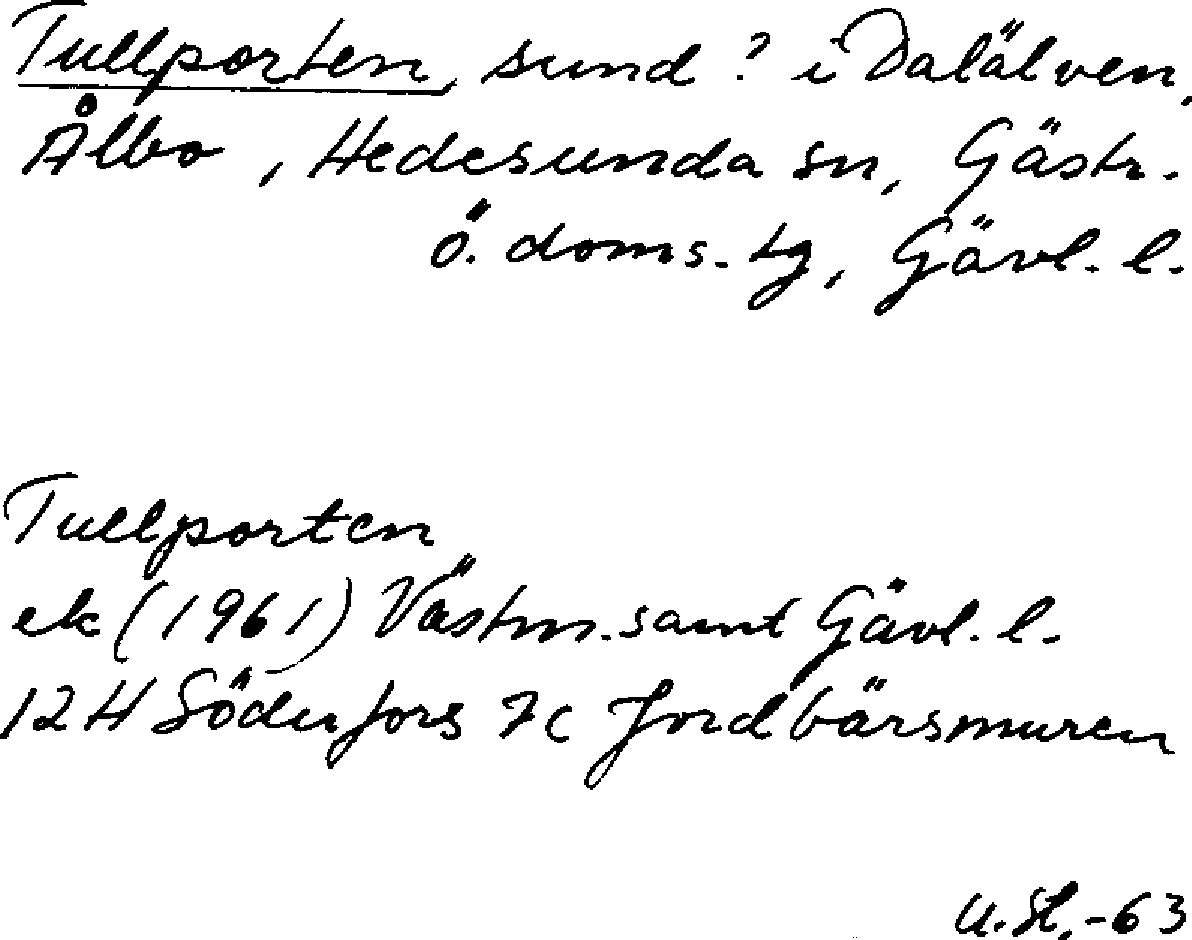 Tullporten, sund? i Dalälven,
Ålbo, Hedesunda sn, Gästr.
ö. doms. tg, Gävl. l.
Tullporten
ek (1961) Västm. samt Gävl. l.
12H Söderfors 7c Jordbärsmuren
U.St.-63